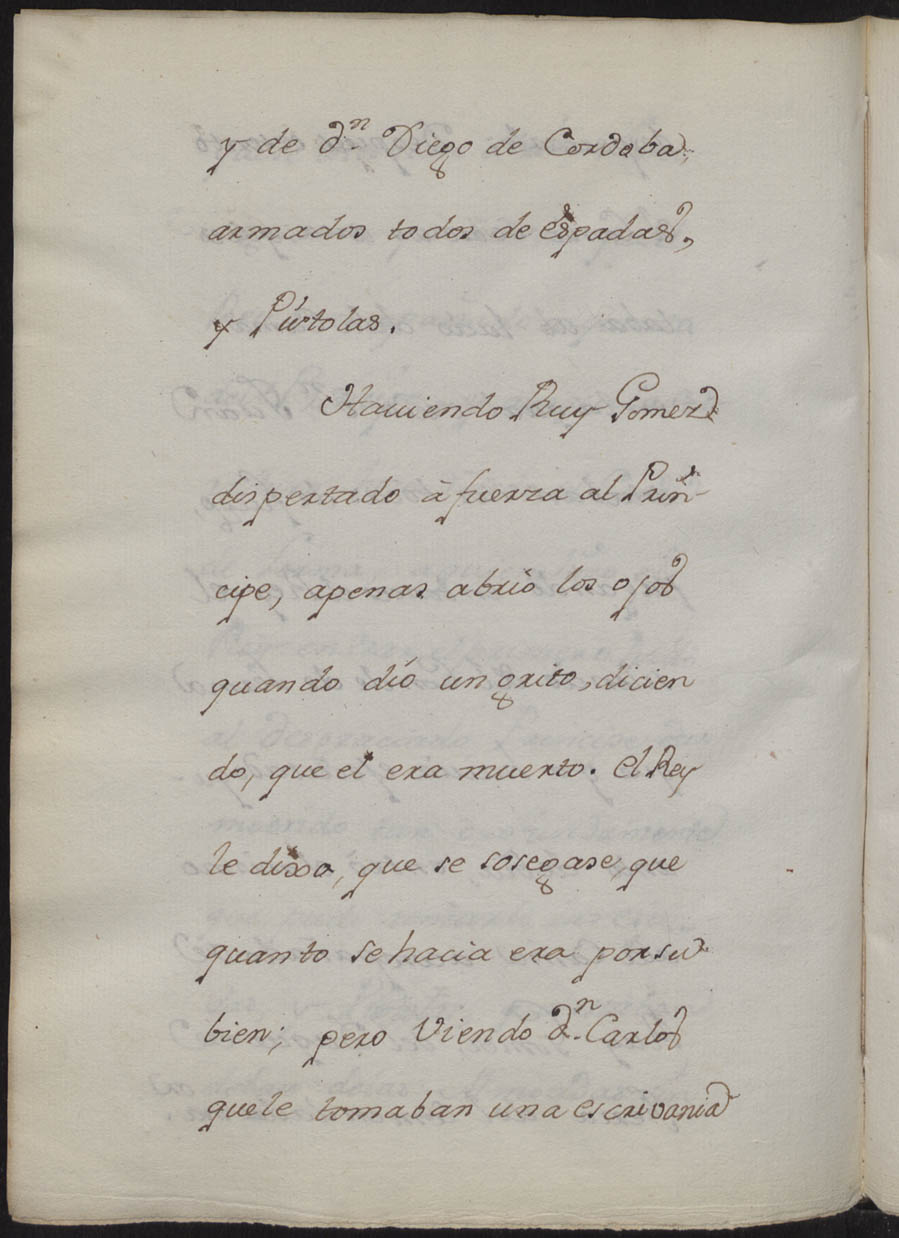 y de dⁿ. Diego de Cordoba,
armados todos de espadas,
y Pistolas.
Haviendo Ruy Gomez
dispertado à fuerza al Prin-
cipe, apenas abriò los ojos
quando dió un grito, dicien
do, que el era muerto. El Rey
le dixo, que se sosegase, que
quanto se hacia era por su
bien; pero viendo dⁿ. Carlos
que le tomaban una escrivania